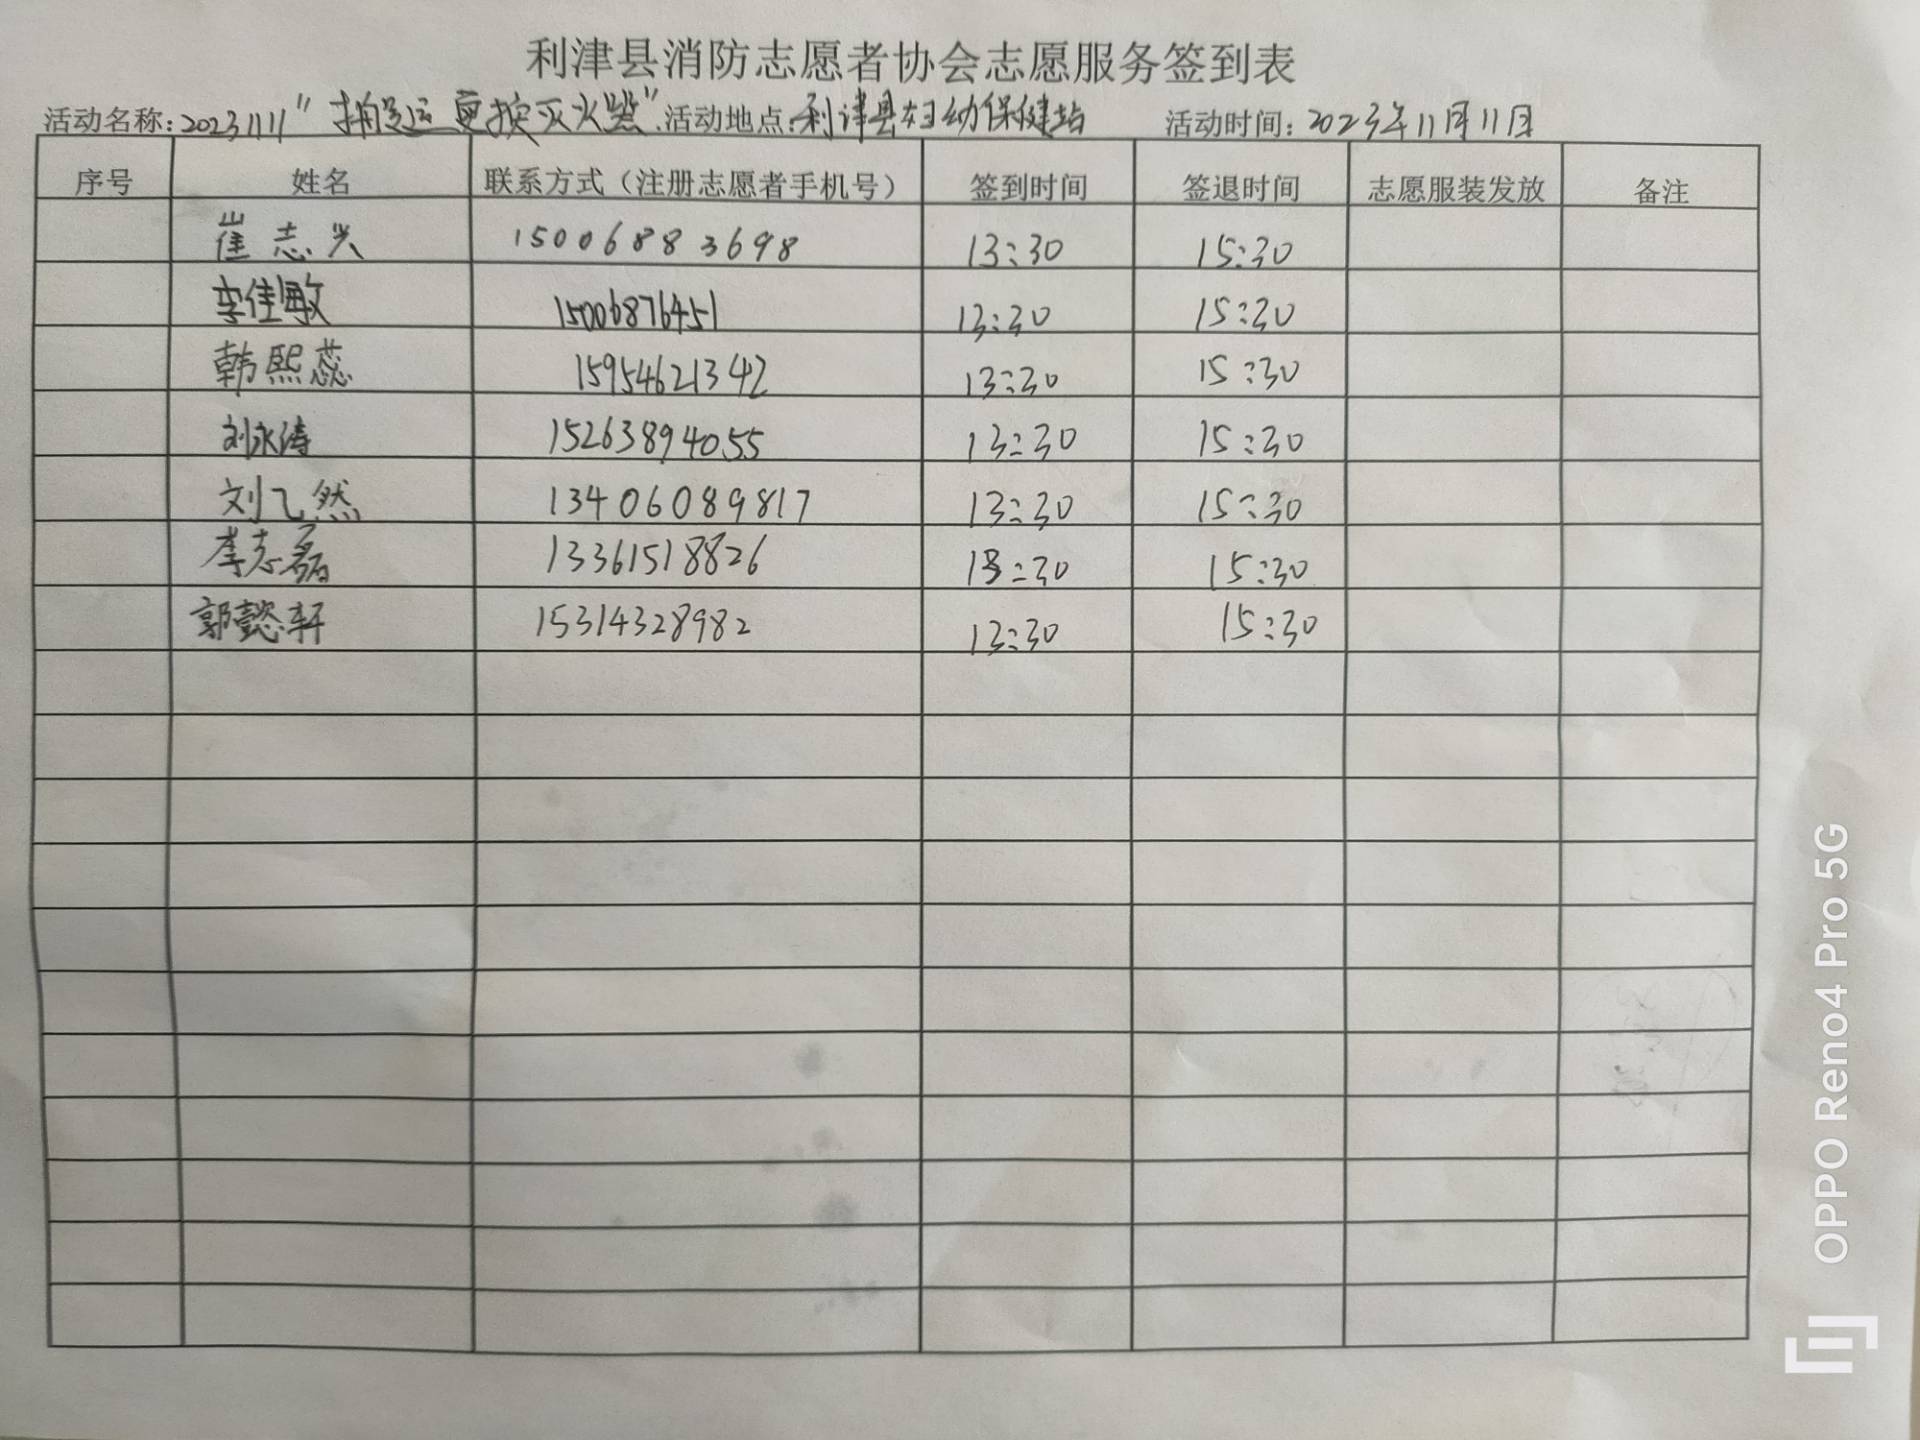 利津县消防志愿者协会志愿服务签到表
活动名称:20231111"搬运更换灭火器"活动地点:利津县妇幼保健站 活动时间:2023年11月11日
序号 姓名 联系方式（注册志愿者手机号） 签到时间 签退时间 志愿服装发放 备注
崔志兴 15006883698 13:30 15:30
李佳敏 15006876451 13:30 15:30
韩熙蕊 15954621342 13:30 15:30
刘永涛 15263894055 13:30 15:30
刘乙然 13406089817 13:30 15:30
李志磊 13361518826 13:30 15:30
郭懿轩 15314328982 13:30 15:30
OPPO Reno4 Pro 5G